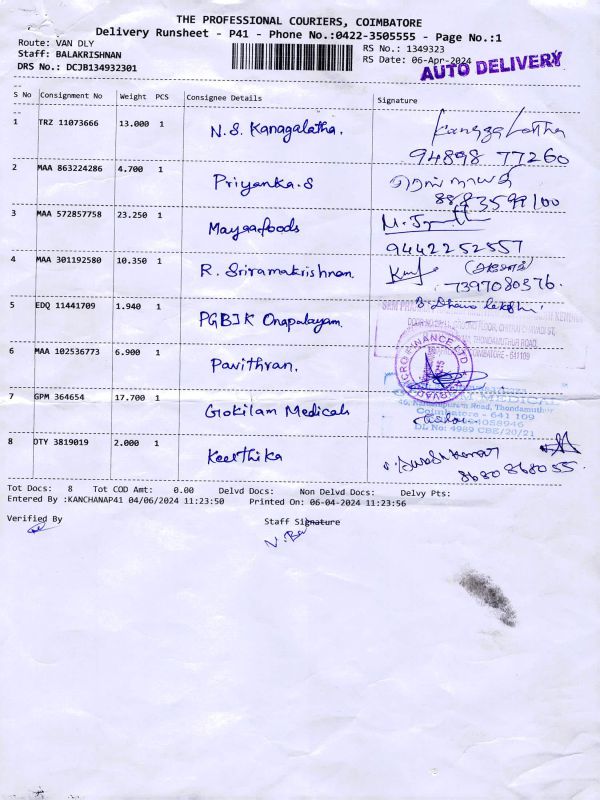 THE PROFESSIONAL COURIERS, COIMBATORE
Delivery Runsheet - P41 - Phone No.:0422-3505555 - Page No.:1
Route: VAN DLY
RS No.: 1349323
Staff: BALAKRISHNAN
RS Date: 06-Apr-2024
DRS No.: DCJB134932301
AUTO DELIVERY
S No Consignment No Weight PCS Consignee Details Signature
1 TRZ 11073666 13.000 1 N.S. Kanagalatha.
94898 77260
2 MAA 863224286 4.700 1 Priyanka.S
8883599100
3 MAA 572857758 23.250 1 Mayaafoods
9442252557
4 MAA 301192580 10.350 1 R. Sriramakrishnan
7397080576.
5 EDQ 11441709 1.940 1 PGBIK Onapalayam
COIMBATORE - 641109
6 MAA 102536773 6.900 1 Pavithran.
7 GPM 364654 17.700 1 Gokilam Medicals
MEDICAL
Road, Thondamuthur
Coimbatore - 641 109
DL No: 4989 CBE/20/21
8 DTY 3819019 2.000 1 Keerthika
8680868055.
Tot Docs: 8 Tot COD Amt: 0.00 Delvd Docs: Non Delvd Docs: Delvy Pts:
Entered By :KANCHANAP41 04/06/2024 11:23:50 Printed On: 06-04-2024 11:23:56
Verified By
Staff Signature